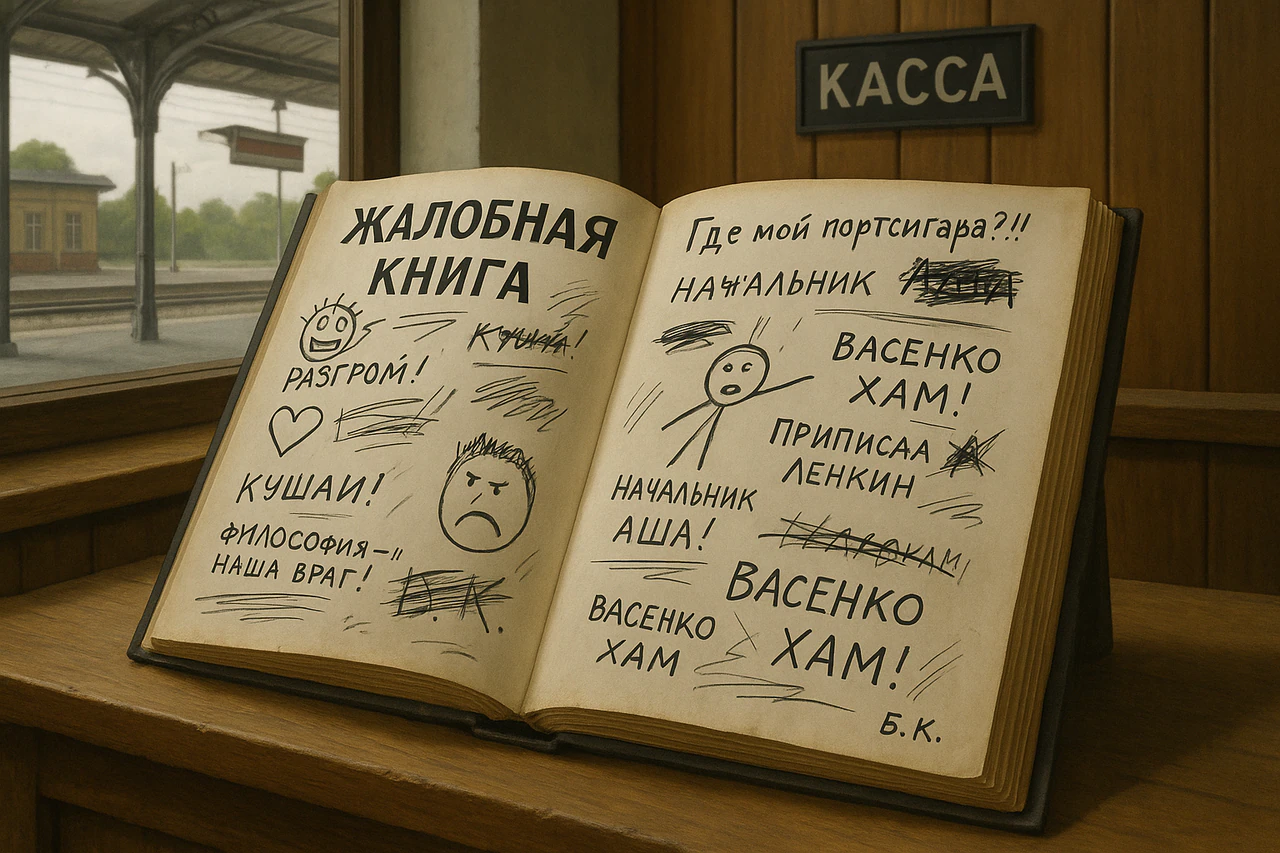 КАССА
ЖАЛОБНАЯ
КНИГА
РАЗГРОМ!
КУШАИ!
ФИЛОСОФИЯ –
НАША ВРАГ!
Б. К.
Где мой портсигара?!!
НАЧАЛЬНИК
ВАСЕНКО
ХАМ!
ПРИПИСАА
ЛЕНКИН
НАЧАЛЬНИК
АША!
ВАСЕНКО
ХАМ!
ВАСЕНКО
ХАМ
Б. К.